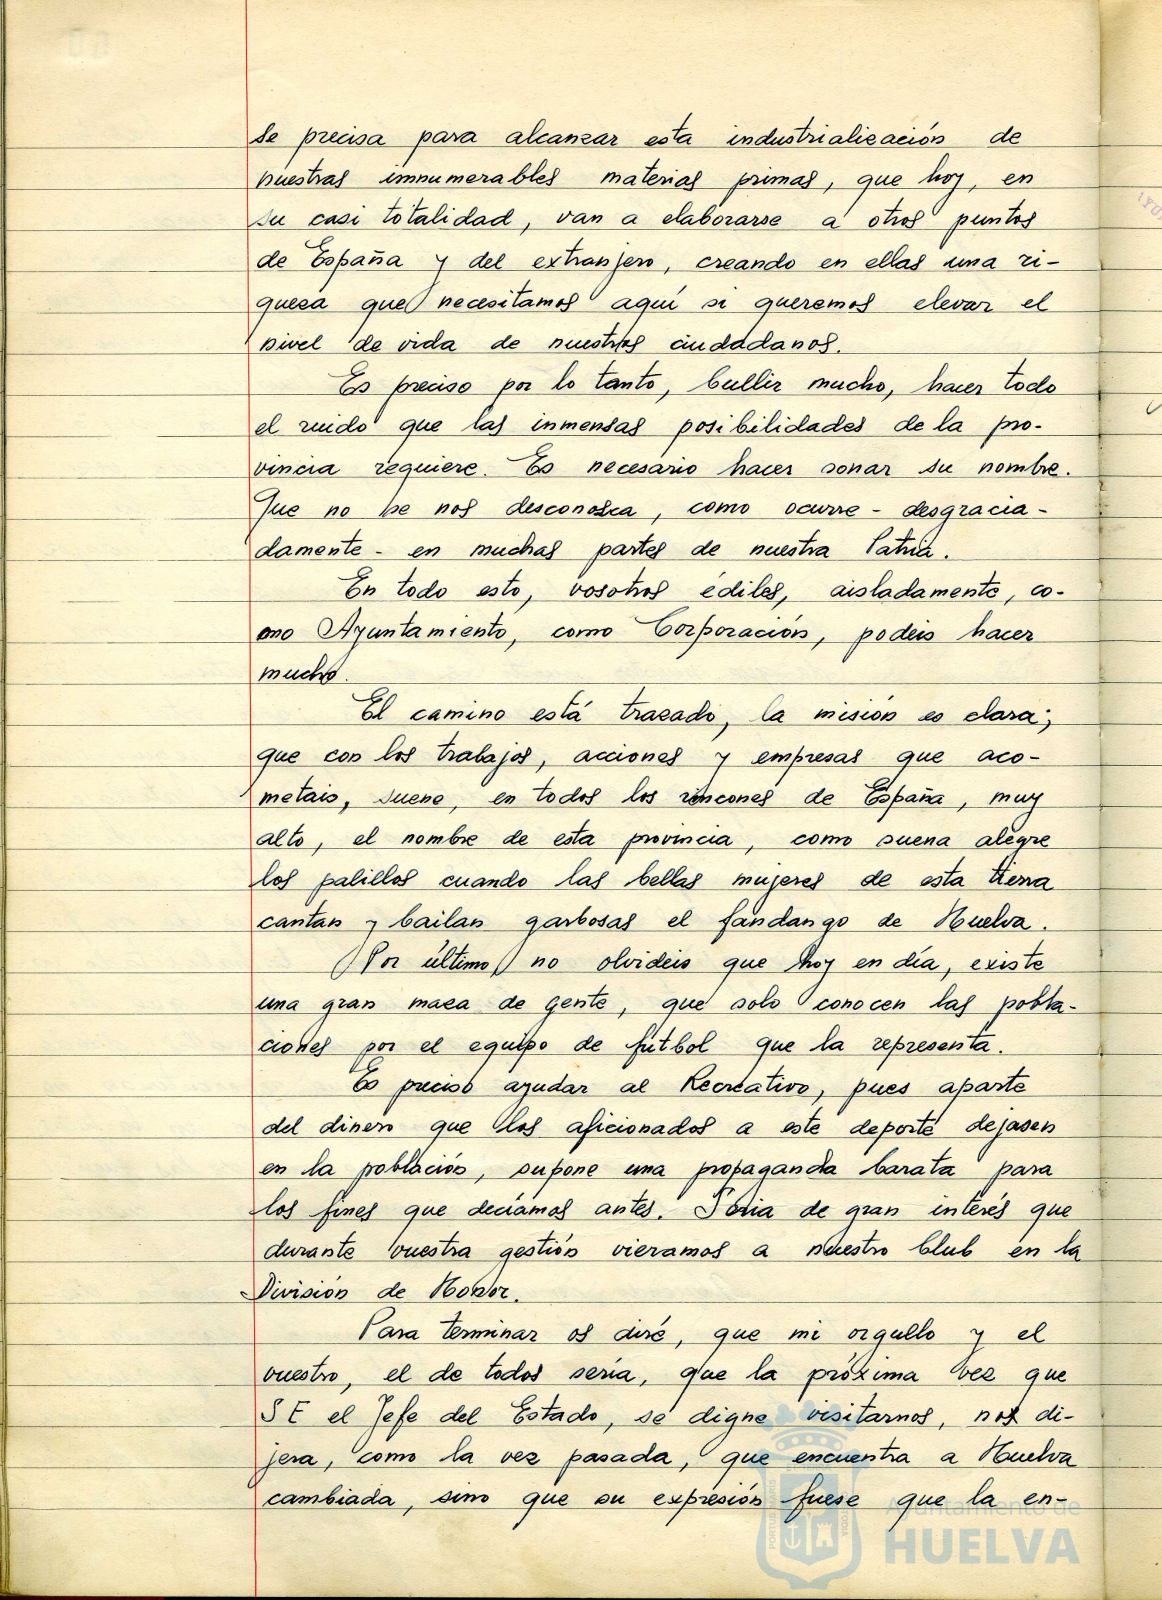 se precisa para alcanzar esta industrialización de
nuestras innumerables materias primas, que hoy, en
su casi totalidad, van a elaborarse a otros puntos
de España y del extranjero, creando en ellas una ri-
queza que necesitamos aquí si queremos elevar el
nivel de vida de nuestros ciudadanos.
Es preciso por lo tanto, bullir mucho, hacer todo
el ruido que las inmensas posibilidades de la pro-
vincia requiere. Es necesario hacer sonar su nombre.
Que no se nos desconozca, como ocurre - desgracia-
damente - en muchas partes de nuestra Patria.
En todo esto, vosotros ediles, aisladamente, co-
mo Ayuntamiento, como Corporación, podeis hacer
mucho.
El camino está trazado, la misión es clara;
que con los trabajos, acciones y empresas que aco-
metais, suene, en todos los rincones de España, muy
alto, el nombre de esta provincia, como suena alegre
los palillos cuando las bellas mujeres de esta tierra
cantan y bailan garbosas el fandango de Huelva.
Por último, no olvideis que hoy en día, existe
una gran masa de gente, que solo conocen las pobla-
ciones por el equipo de fútbol que la representa.
Es preciso ayudar al Recreativo, pues aparte
del dinero que los aficionados a este deporte dejasen
en la población, supone una propaganda barata para
los fines que deciamos antes. Seria de gran interés que
durante vuestra gestión vieramos a nuestro Club en la
División de Honor.
Para terminar os diré, que mi orgullo y el
vuestro, el de todos sería, que la próxima vez que
S E el Jefe del Estado, se digne visitarnos, nos di-
jera, como la vez pasada, que encuentra a Huelva
cambiada, sino que su expresión fuese que la en-
Ayuntamiento de
HUELVA